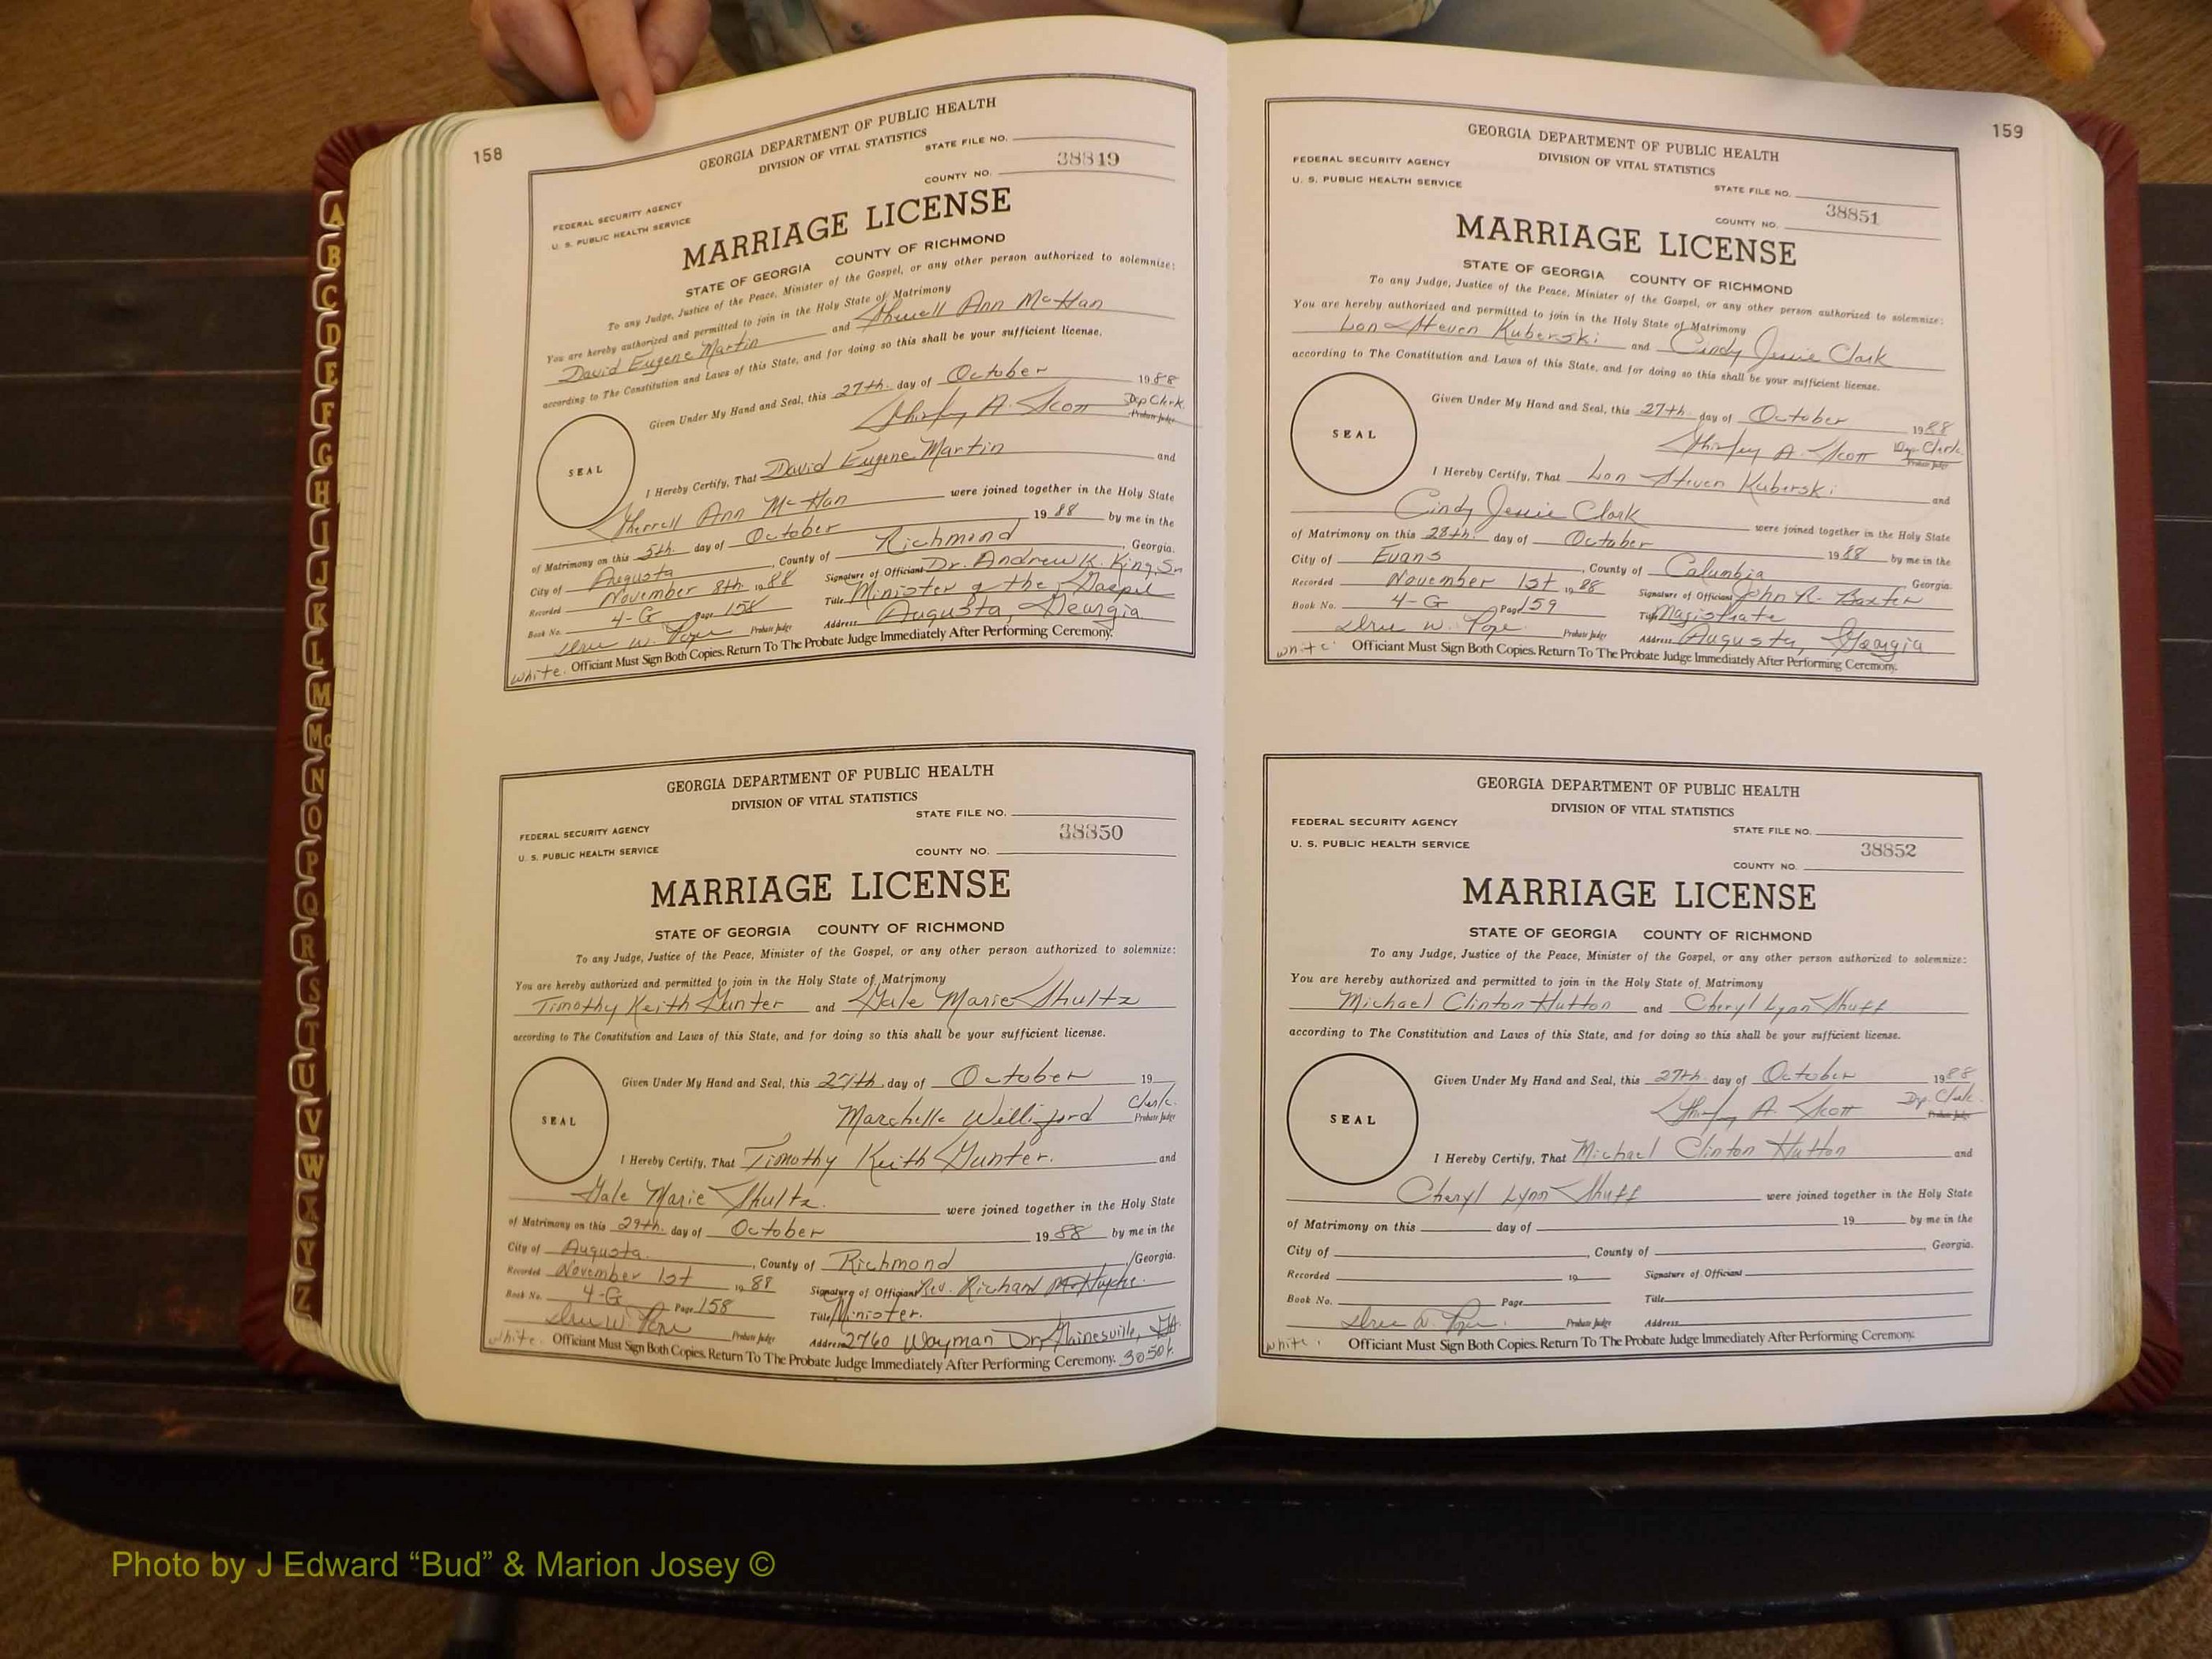 158
GEORGIA DEPARTMENT OF PUBLIC HEALTH
DIVISION OF VITAL STATISTICS
STATE FILE NO.
38849
FEDERAL SECURITY AGENCY
U. S. PUBLIC HEALTH SERVICE
COUNTY NO.
MARRIAGE LICENSE
STATE OF GEORGIA COUNTY OF RICHMOND
To any Judge, Justice of the Peace, Minister of the Gospel, or any other person authorized to solemnize:
You are hereby authorized and permitted to join in the Holy State of Matrimony
David Eugene Martin and Sherrell Ann McHan
according to The Constitution and Laws of this State, and for doing so this shall be your sufficient license.
Given Under My Hand and Seal, this 27th. day of October 1988
Shirley A. Scott Dep Clerk.
Probate Judge
SEAL
I Hereby Certify, That David Eugene Martin and
Sherrell Ann McHan were joined together in the Holy State
of Matrimony on this 5th. day of October 1988 by me in the
City of Augusta, County of Richmond, Georgia.
Recorded November 8th 1988 Signature of Officiant Dr. Andrew K. King, Sr
Book No. 4-G Page 158 Title Minister of the Gospel
Probate Judge Address Augusta, Georgia
white. Officiant Must Sign Both Copies. Return To The Probate Judge Immediately After Performing Ceremony.
GEORGIA DEPARTMENT OF PUBLIC HEALTH
DIVISION OF VITAL STATISTICS
STATE FILE NO.
38850
FEDERAL SECURITY AGENCY
U. S. PUBLIC HEALTH SERVICE
COUNTY NO.
MARRIAGE LICENSE
STATE OF GEORGIA COUNTY OF RICHMOND
To any Judge, Justice of the Peace, Minister of the Gospel, or any other person authorized to solemnize:
You are hereby authorized and permitted to join in the Holy State of Matrimony
Timothy Keith Gunter and Gale Marie Shultz
according to The Constitution and Laws of this State, and for doing so this shall be your sufficient license.
Given Under My Hand and Seal, this 27th day of October 19
Marchelle Williford Clerk.
Probate Judge
SEAL
I Hereby Certify, That Timothy Keith Gunter. and
Gale Marie Shultz. were joined together in the Holy State
of Matrimony on this 29th. day of October 1988 by me in the
City of Augusta., County of Richmond, Georgia.
Recorded November 1st 1988 Signature of Officiant Rev. Richard
Book No. 4-G Page 158 Title Minister.
Probate Judge Address 2760 Wayman Dr, Gainesville, GA
white. Officiant Must Sign Both Copies. Return To The Probate Judge Immediately After Performing Ceremony. 30501.
159
GEORGIA DEPARTMENT OF PUBLIC HEALTH
DIVISION OF VITAL STATISTICS
FEDERAL SECURITY AGENCY
U. S. PUBLIC HEALTH SERVICE
STATE FILE NO.
38851
COUNTY NO.
MARRIAGE LICENSE
STATE OF GEORGIA COUNTY OF RICHMOND
To any Judge, Justice of the Peace, Minister of the Gospel, or any other person authorized to solemnize:
You are hereby authorized and permitted to join in the Holy State of Matrimony
Lon Steven Kuberski and Cindy Jessie Clark
according to The Constitution and Laws of this State, and for doing so this shall be your sufficient license.
Given Under My Hand and Seal, this 27th. day of October 1988
Shirley A. Scott Dep. Clerk.
Probate Judge
SEAL
I Hereby Certify, That Lon Steven Kuberski and
Cindy Jessie Clark were joined together in the Holy State
of Matrimony on this 28th. day of October 1988 by me in the
City of Evans, County of Columbia Georgia.
Recorded November 1st 1988 Signature of Officiant John R. Baxter
Book No. 4-G Page 159 Title Magistrate
Probate Judge Address Augusta, Georgia
white. Officiant Must Sign Both Copies. Return To The Probate Judge Immediately After Performing Ceremony.
GEORGIA DEPARTMENT OF PUBLIC HEALTH
DIVISION OF VITAL STATISTICS
FEDERAL SECURITY AGENCY
STATE FILE NO.
U. S. PUBLIC HEALTH SERVICE
38852
COUNTY NO.
MARRIAGE LICENSE
STATE OF GEORGIA COUNTY OF RICHMOND
To any Judge, Justice of the Peace, Minister of the Gospel, or any other person authorized to solemnize:
You are hereby authorized and permitted to join in the Holy State of Matrimony
Michael Clinton Hutton and Cheryl Lynn Shuff
according to The Constitution and Laws of this State, and for doing so this shall be your sufficient license.
Given Under My Hand and Seal, this 27th. day of October 1988
Shirley A. Scott Dep. Clerk.
Probate Judge
SEAL
I Hereby Certify, That Michael Clinton Hutton and
Cheryl Lynn Shuff were joined together in the Holy State
of Matrimony on this day of 19 by me in the
City of , County of , Georgia.
Recorded 19 Signature of Officiant
Book No. Page Title
Probate Judge Address
white. Officiant Must Sign Both Copies. Return To The Probate Judge Immediately After Performing Ceremony.
A
B
C
D
E
F
G
H
I
J
K
L
M
Mc
N
O
P
Q
R
S
T
U
V
W
X
Y
Z
Photo by J Edward “Bud” & Marion Josey ©